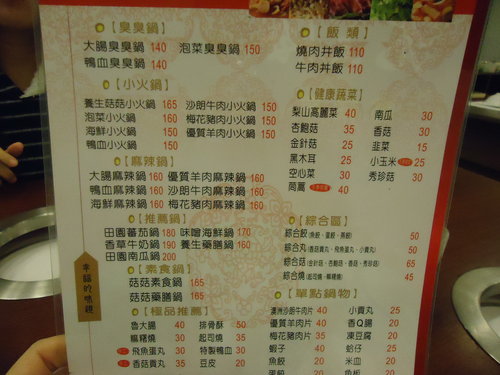 【臭臭鍋】
大腸臭臭鍋 140 泡菜臭臭鍋 150
鴨血臭臭鍋 140
【小火鍋】
養生菇菇小火鍋 165 沙朗牛肉小火鍋 150
泡菜小火鍋 160 梅花豬肉小火鍋 150
海鮮小火鍋 150 優質羊肉小火鍋 150
【麻辣鍋】
大腸麻辣鍋 160 優質羊肉麻辣鍋 160
鴨血麻辣鍋 160 沙朗牛肉麻辣鍋 160
海鮮麻辣鍋 160 梅花豬肉麻辣鍋 160
【推薦鍋】
田園蕃茄鍋 180 味噌海鮮鍋 170
香草牛奶鍋 190 養生藥膳鍋 160
田園南瓜鍋 200
【素食鍋】
菇菇素食鍋 165
菇菇藥膳鍋 185
【極品推薦】
魯大腸 40 排骨酥 50
鵝嘌燒 30 起司燒 35
飛魚蛋丸 30 特製鴨血 30
香菇貢丸 35 豆皮 20
幸福的味鏡
【飯類】
燒肉丼飯 110
牛肉丼飯 110
【健康蔬菜】
梨山高麗菜 40 南瓜 30
杏鮑菇 35 香菇 30
金針菇 25 韭菜 15
黑木耳 25 小玉米 25
空心菜 30 秀珍菇 30
茼蒿 40
【綜合區】
綜合餃(魚餃、蛋餃、燕餃) 50
綜合丸(香菇貢丸、飛魚蛋丸、小貢丸) 50
綜合菇(金針菇、杏鮑菇、香菇、秀珍菇) 65
綜合燒(起司燒、鱈嘌燒) 35
【單點鍋物】
澳洲沙朗牛肉片 40 小貢丸 25
優質羊肉片 40 香Q腸 20
梅花豬肉片 35 凍豆腐 20
蝦子 40 蛤仔 25
魚餃 20 米血 20
魚板 20